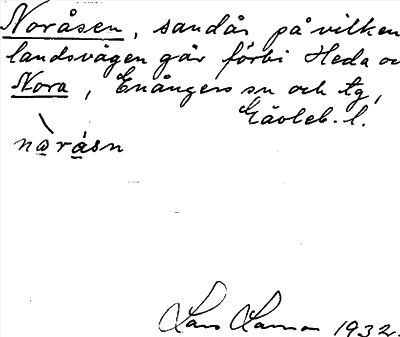 Noråsen, sandås på vilken
landsvägen går förbi Heda oc
Nora, Enångers sn och tg,
Gävleb. l.
nårásn
Lars 1932.